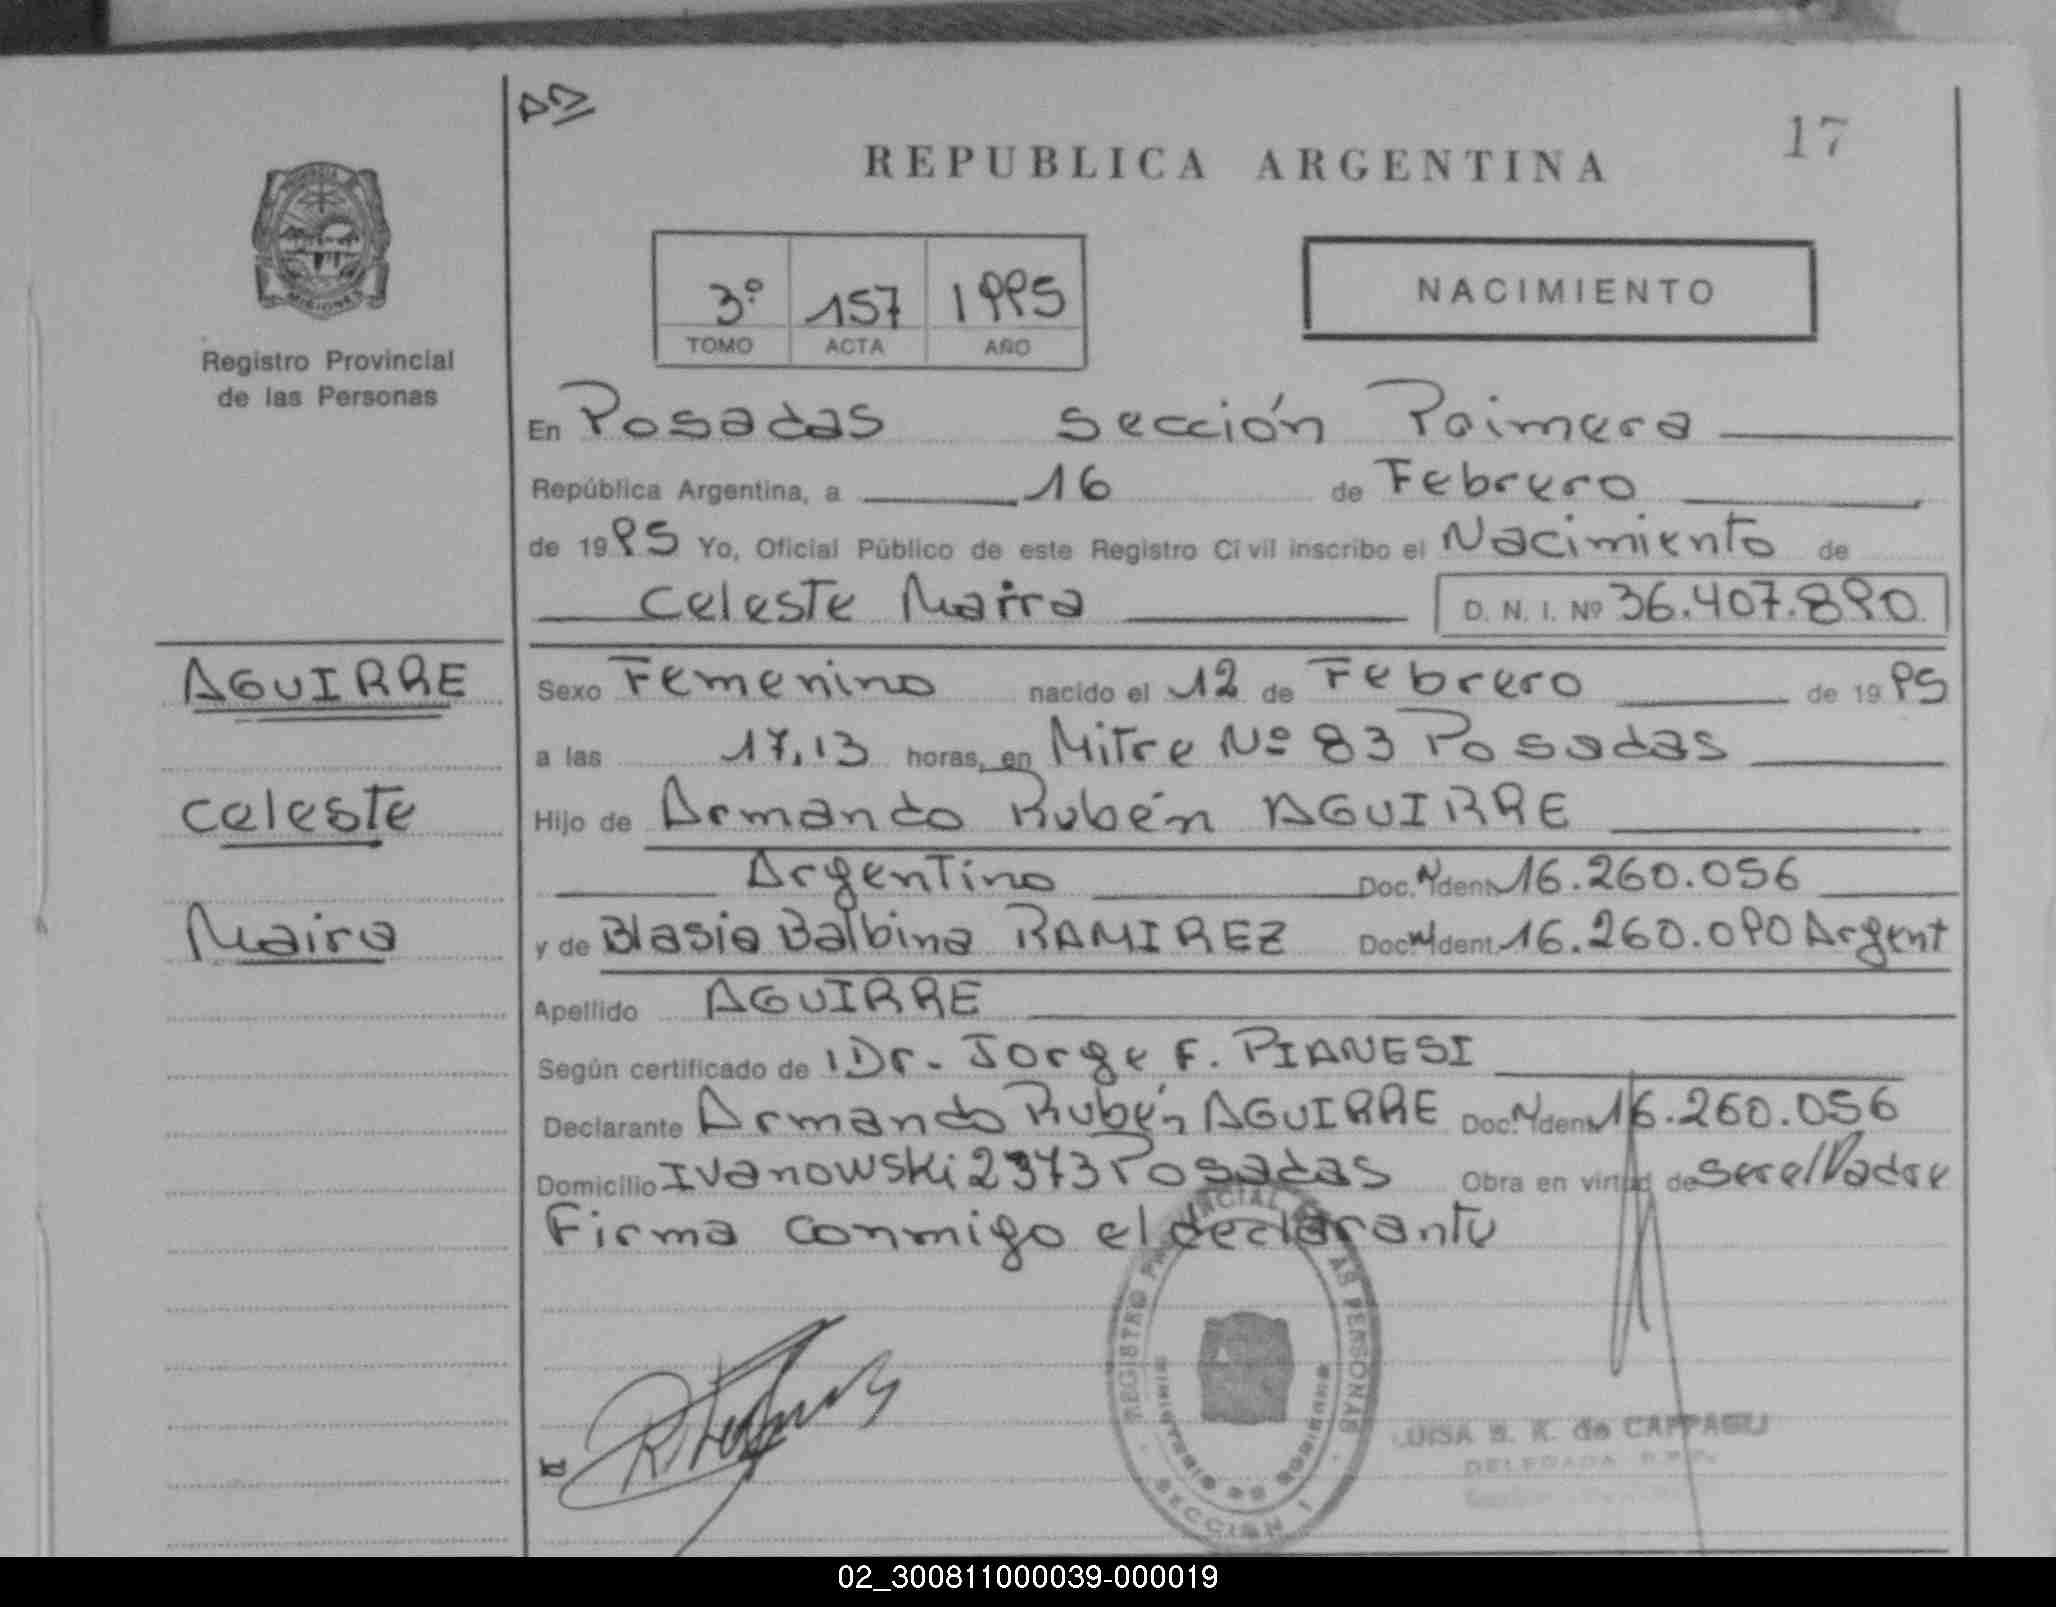 17
REPUBLICA ARGENTINA
3º 157 1995
TOMO ACTA AÑO
NACIMIENTO
MISIONES
Registro Provincial
de las Personas
En Posadas sección Primera
República Argentina, a 16 de Febrero
de 1995 Yo, Oficial Público de este Registro Civil inscribo el Nacimiento de
Celeste Maira D. N. I. Nº 36.407.890
AGUIRRE
Celeste
Maira
Sexo Femenino nacido el 12 de Febrero de 1995
a las 17,13 horas, en Mitre Nº 83 Posadas
Hijo de Armando Rubén AGUIRRE
Argentino Doc. N Ident. 16.260.056
y de Blasia Balbina RAMIREZ Doc. N Ident. 16.260.090 Argent
Apellido AGUIRRE
Según certificado de Dr. Jorge F. PIANESI
Declarante Armando Rubén AGUIRRE Doc. N Ident. 16.260.056
Domicilio Ivanowski 2373 Posadas Obra en virtud de ser el Padre
Firma conmigo el declarante
REGISTRO PROVINCIAL DE LAS PERSONAS
MINISTERIO DE GOBIERNO
SECCION 1
LUISA S. K. de CAPPAGLI
DELEGADA R.P.P.
02_300811000039-000019